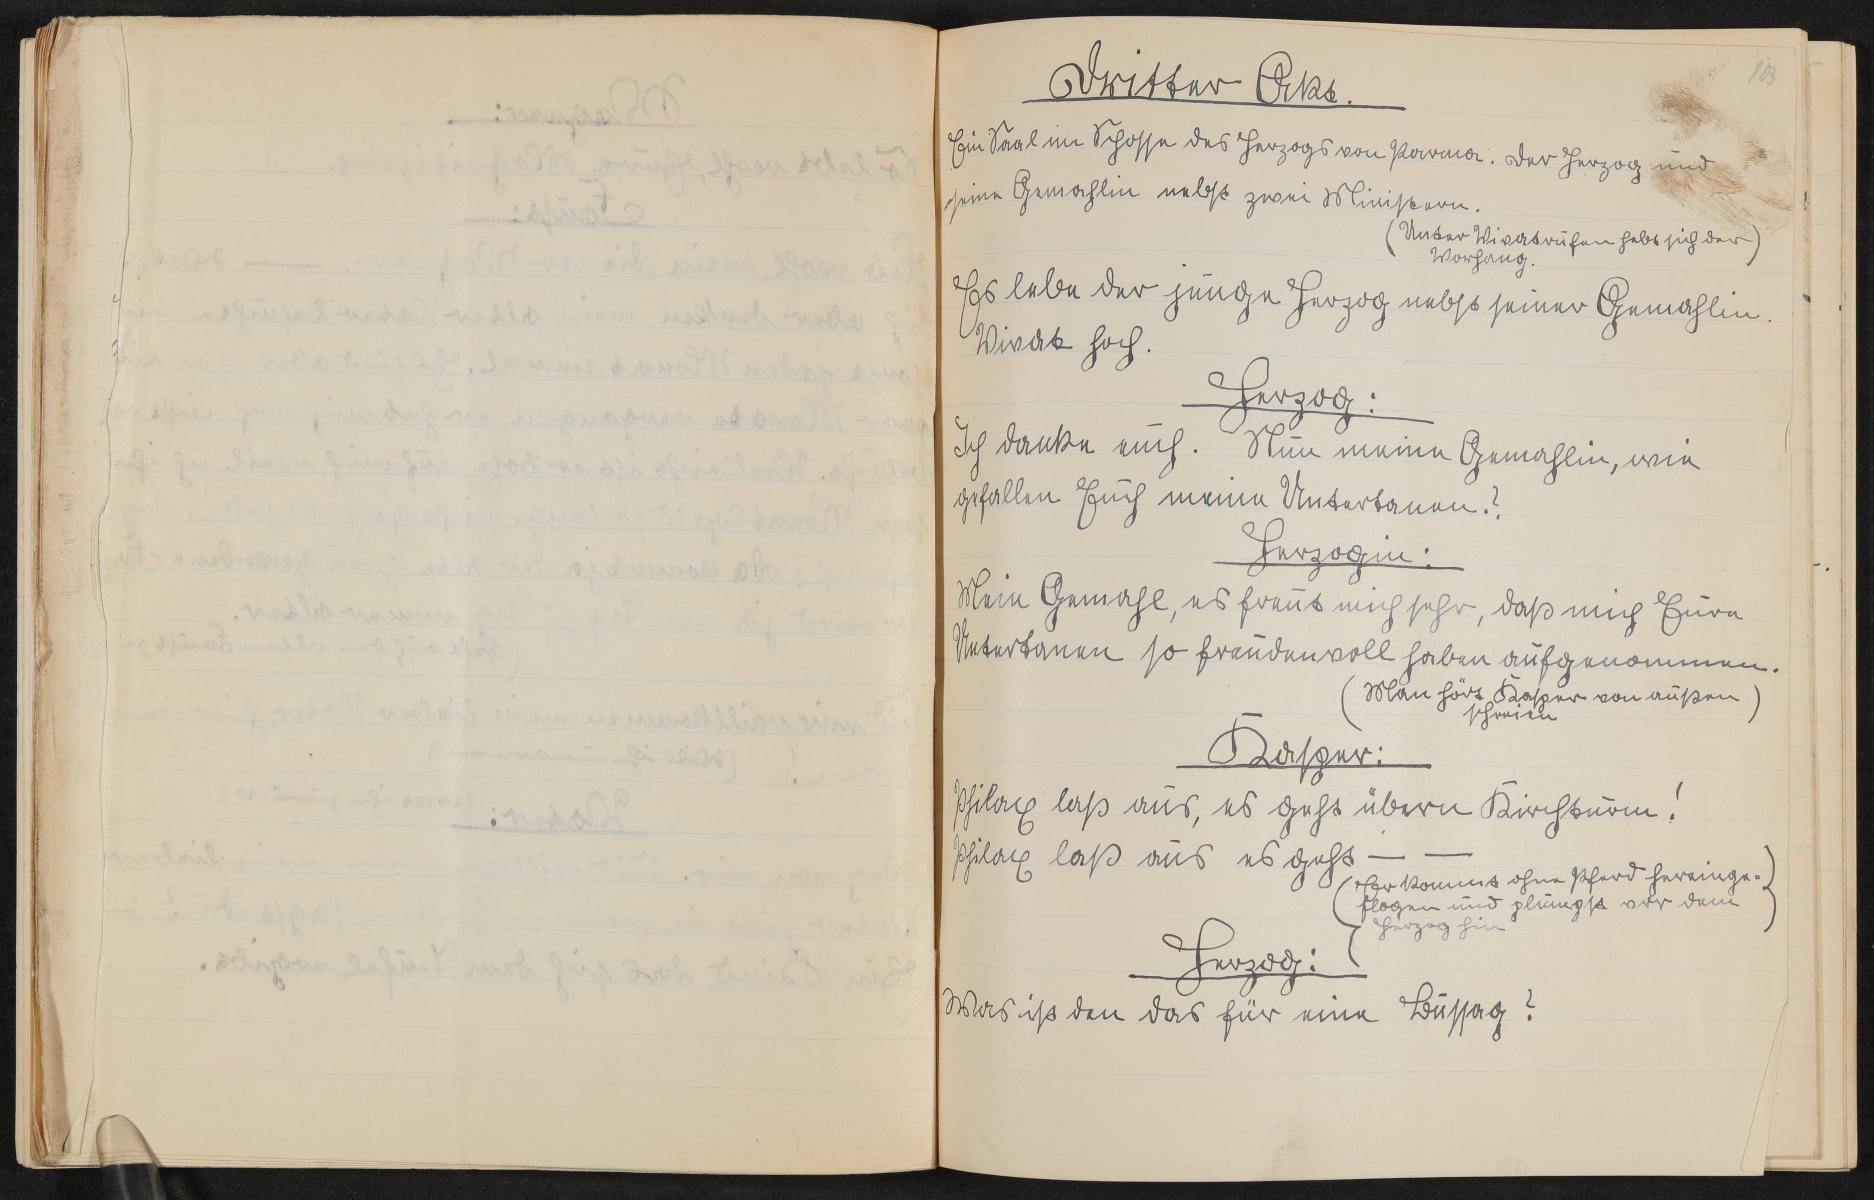 103
Dritter Akt.
Ein Saal im Schosse des Herzogs von Parma. Der Herzog und
seine Gemahlin nebst zwei Ministern.
(Unter Vivatrufen hebt sich der
Vorhang.)
Es lebe der junge Herzog nebst seiner Gemahlin.
Vivat hoch.
Herzog:
Ich danke euch. Nun meine Gemahlin, wie
gefallen Euch meine Untertanen.?
Herzogin:
Mein Gemahl, es freut mich sehr, daß mich Eure
Untertanen so freudenvoll haben aufgenommen.
(Man hört Kasper von außen
schreien)
Kasper:
Philax laß aus, es geht übern Kirchturm!
Philax laß aus es geht — —
(Er kommt ohne Pferd hereinge-
flogen und plumpst vor dem
Herzog hin)
Herzog:
Was ist den das für eine